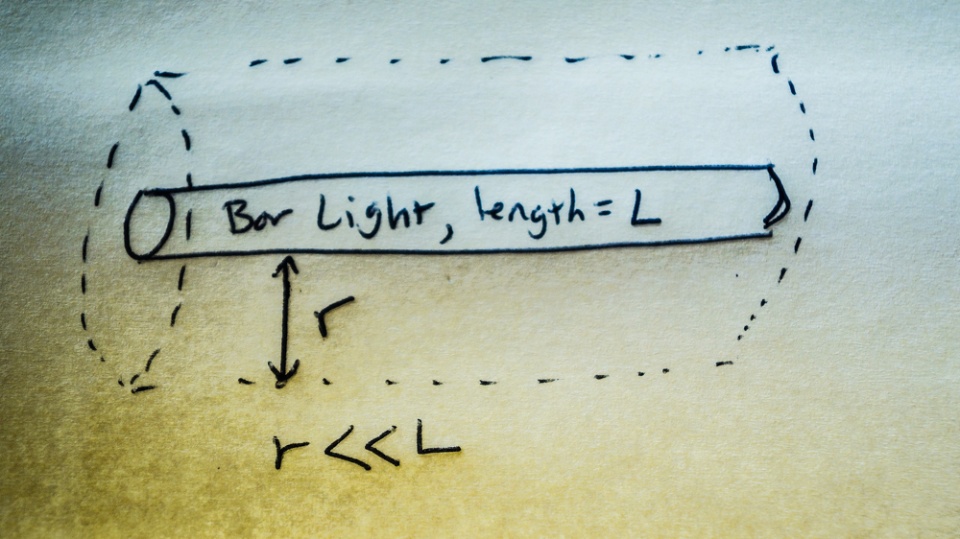 Bar Light, length = L
r
r << L